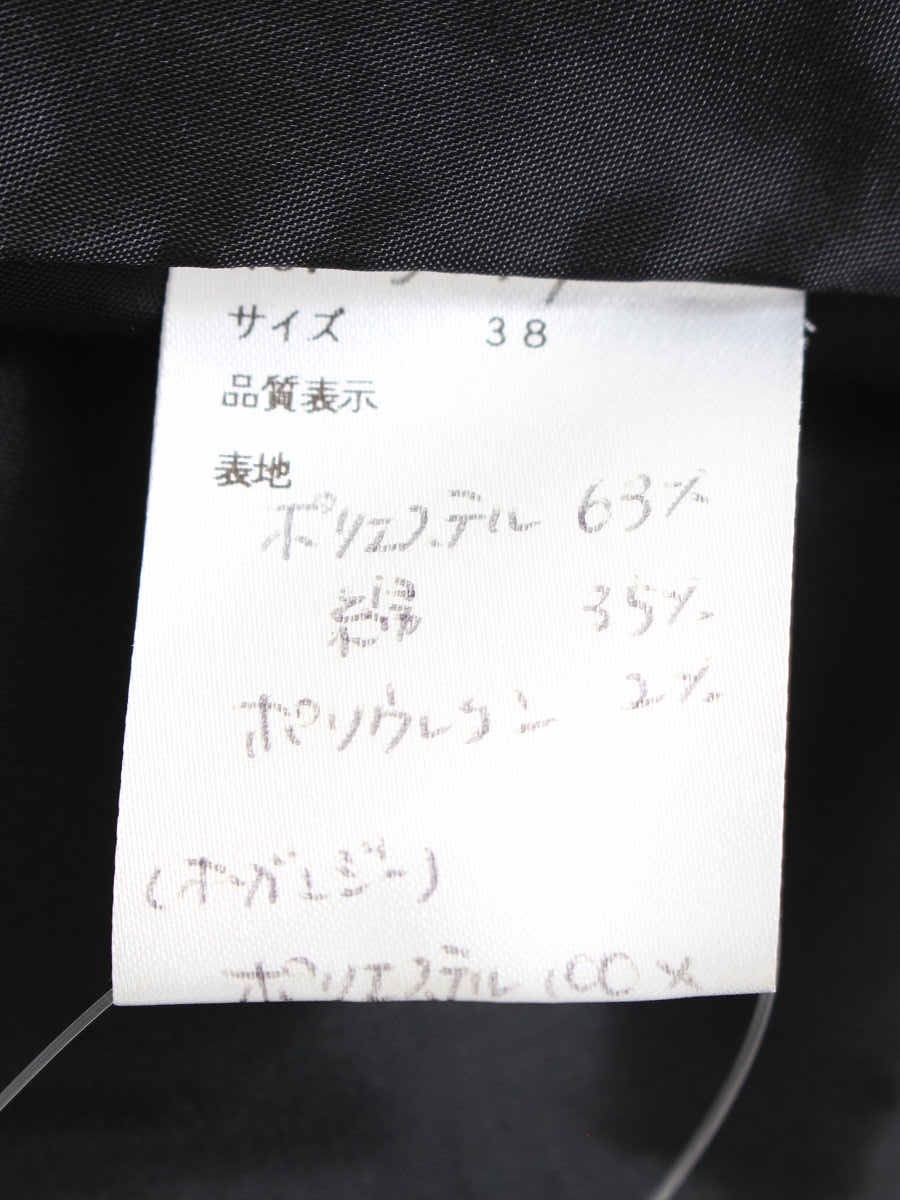 サイズ 38
品質表示
表地
ポリエステル 63%
綿 35%
ポリウレタン 2%
(オーガニジー)
ポリエステル 100%